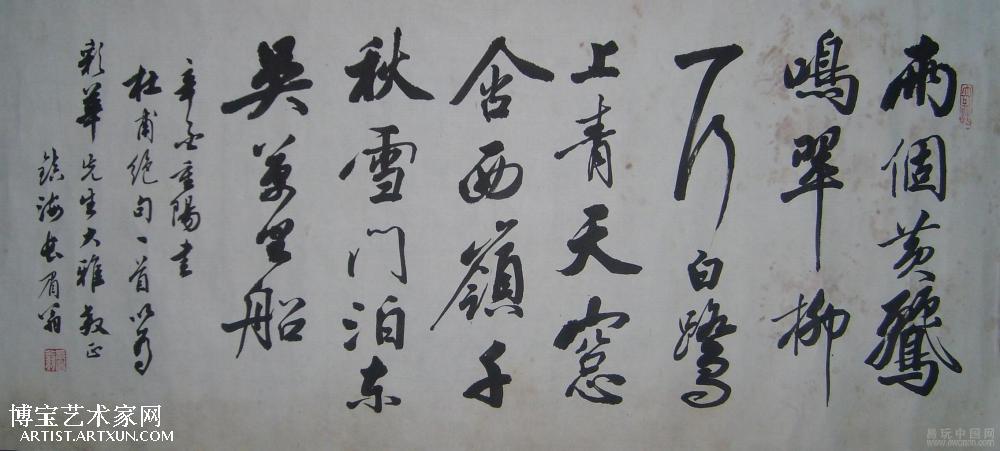 兩個黃鸝
鳴翠柳
一行白鷺
上青天窓
含西嶺千
秋雪門泊東
吳萬里船
辛酉重陽書
杜甫絕句一首以為
華先生大雅教正
鎮海長眉翁
博宝艺术家网
ARTIST.ARTXUN.COM
易玩中国网